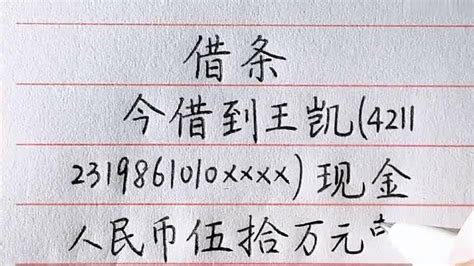 借条
今借到王凯(4211
2319861010xxxx)现金
人民币伍拾万元